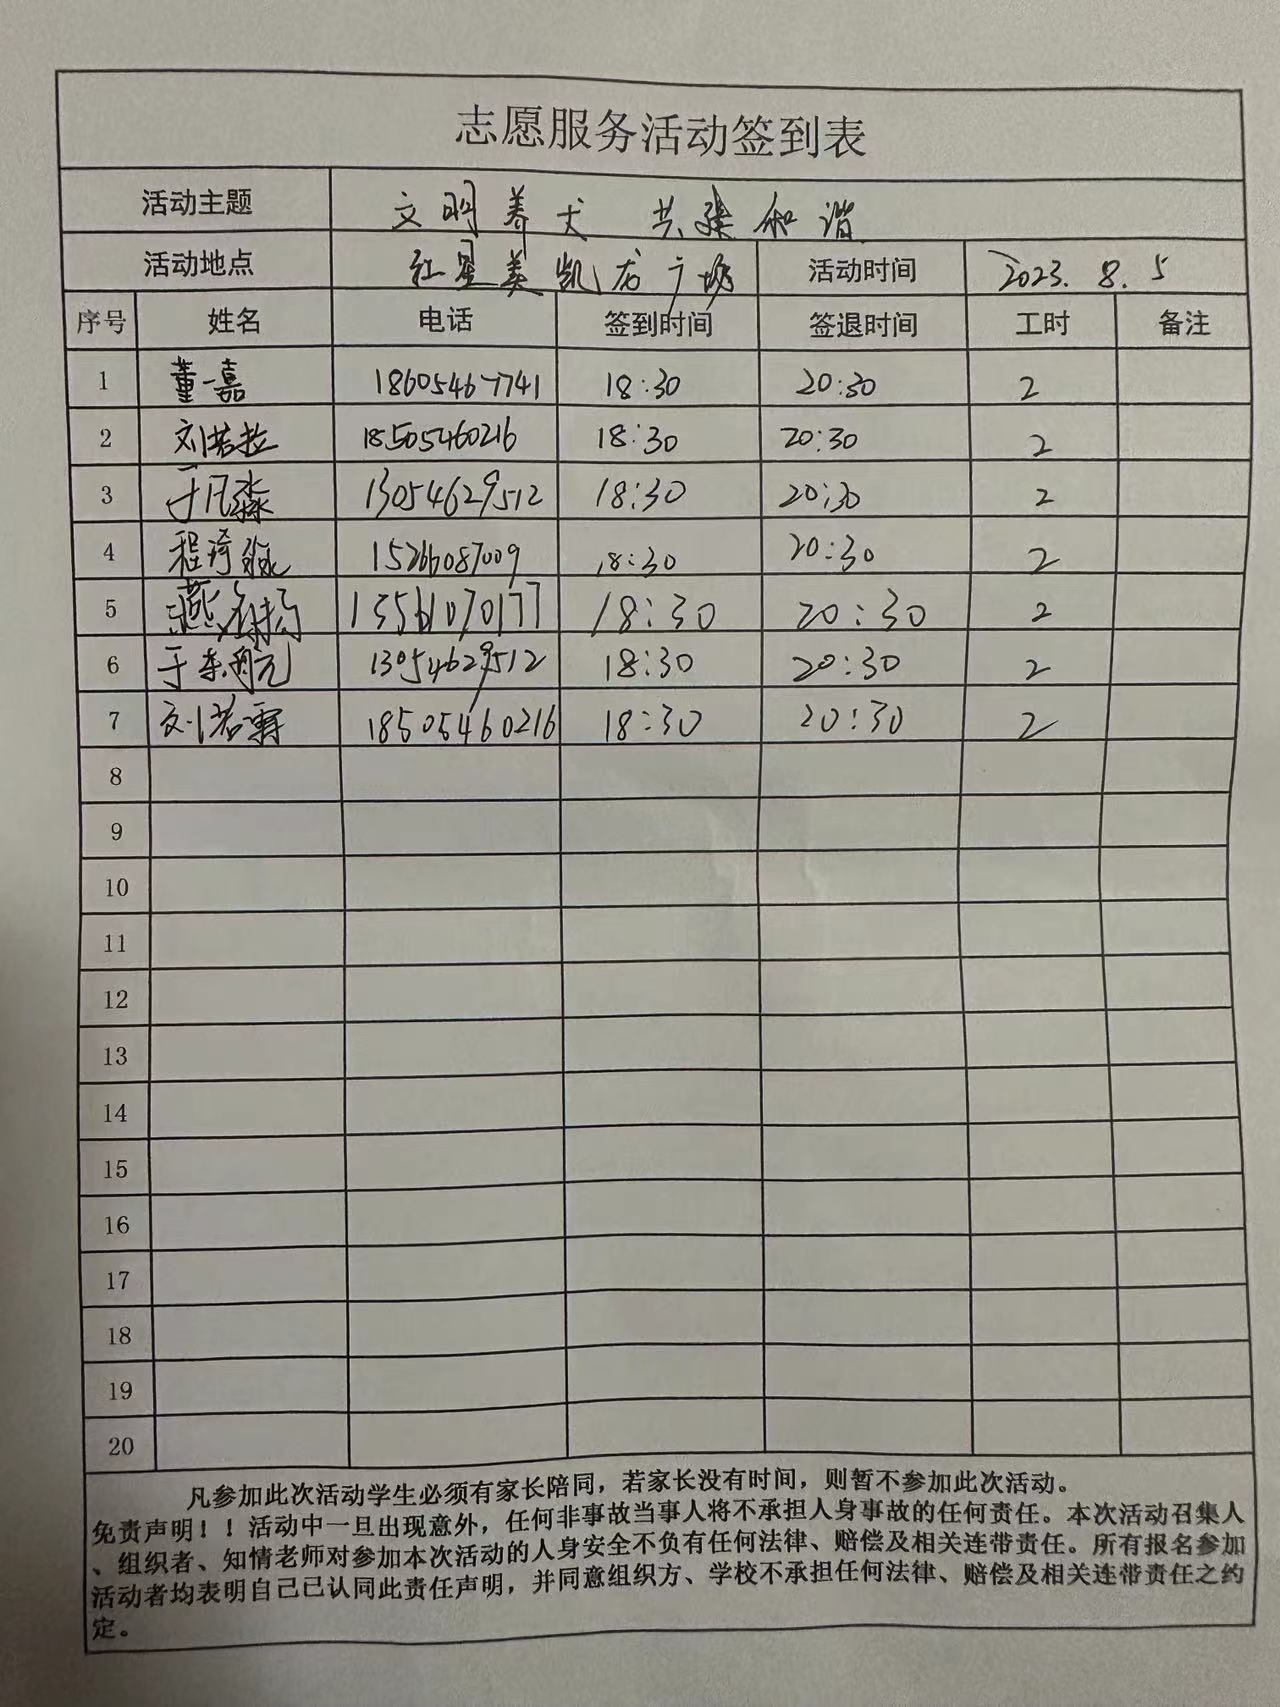 志愿服务活动签到表
活动主题 文明养犬 共建和谐
活动地点 红星美凯龙广场 活动时间 2023.8.5
序号 姓名 电话 签到时间 签退时间 工时 备注
1 董一嘉 18605467741 18:30 20:30 2
2 刘若拉 18505460216 18:30 20:30 2
3 于凡淼 13054629512 18:30 20:30 2
4 程琦 15266087009 18:30 20:30 2
5 燕 13561070177 18:30 20:30 2
6 于东 13054629512 18:30 20:30 2
7 刘若霖 18505460216 18:30 20:30 2
8
9
10
11
12
13
14
15
16
17
18
19
20
凡参加此次活动学生必须有家长陪同，若家长没有时间，则暂不参加此次活动。
免责声明！！活动中一旦出现意外，任何非事故当事人将不承担人身事故的任何责任。本次活动召集人
、组织者、知情老师对参加本次活动的人身安全不负有任何法律、赔偿及相关连带责任。所有报名参加
活动者均表明自己已认同此责任声明，并同意组织方、学校不承担任何法律、赔偿及相关连带责任之约
定。